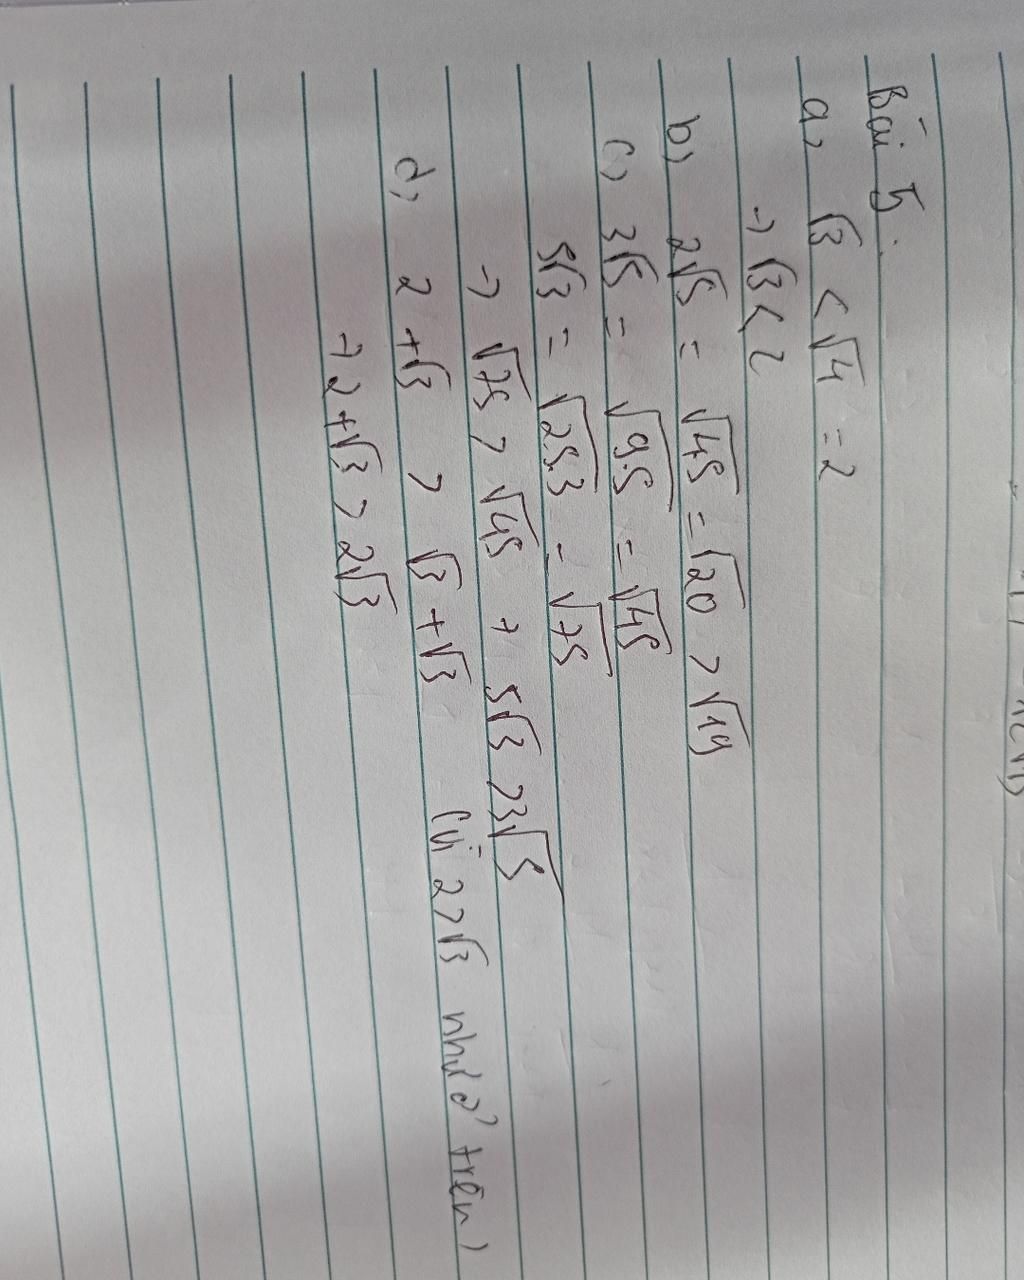 Bài 5.
a, √3 < √4 = 2
→ √3 < 2
b, 2√5 = √4.5 = √20 > √19
c, 3√5 = √9.5 = √45
5√3 = √25.3 = √75
→ √75 > √45 → 5√3 > 3√5
d, 2 + √3 > √3 + √3 (vì 2 > √3 như ở trên)
→ 2 + √3 > 2√3